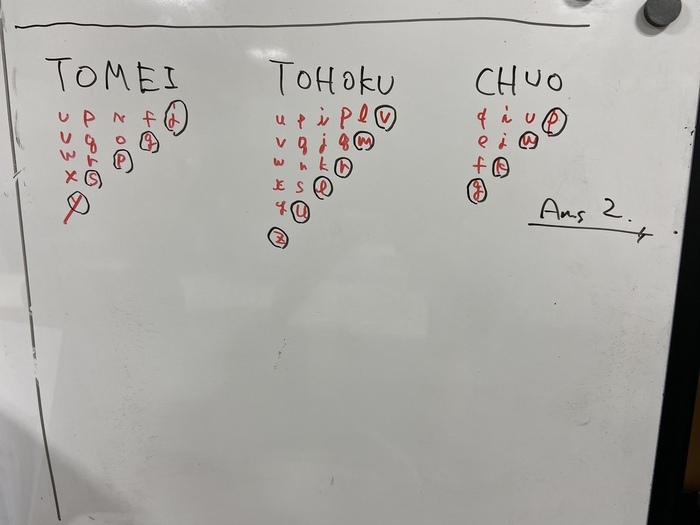 TOMEI
u p n f j
v q o g
w r p
x s
y
TOHOKU
u p i p l v
v q j q m
w r k r
x s l
y u
z
CHUO
d i v p
e j w
f k
g
Ans 2.